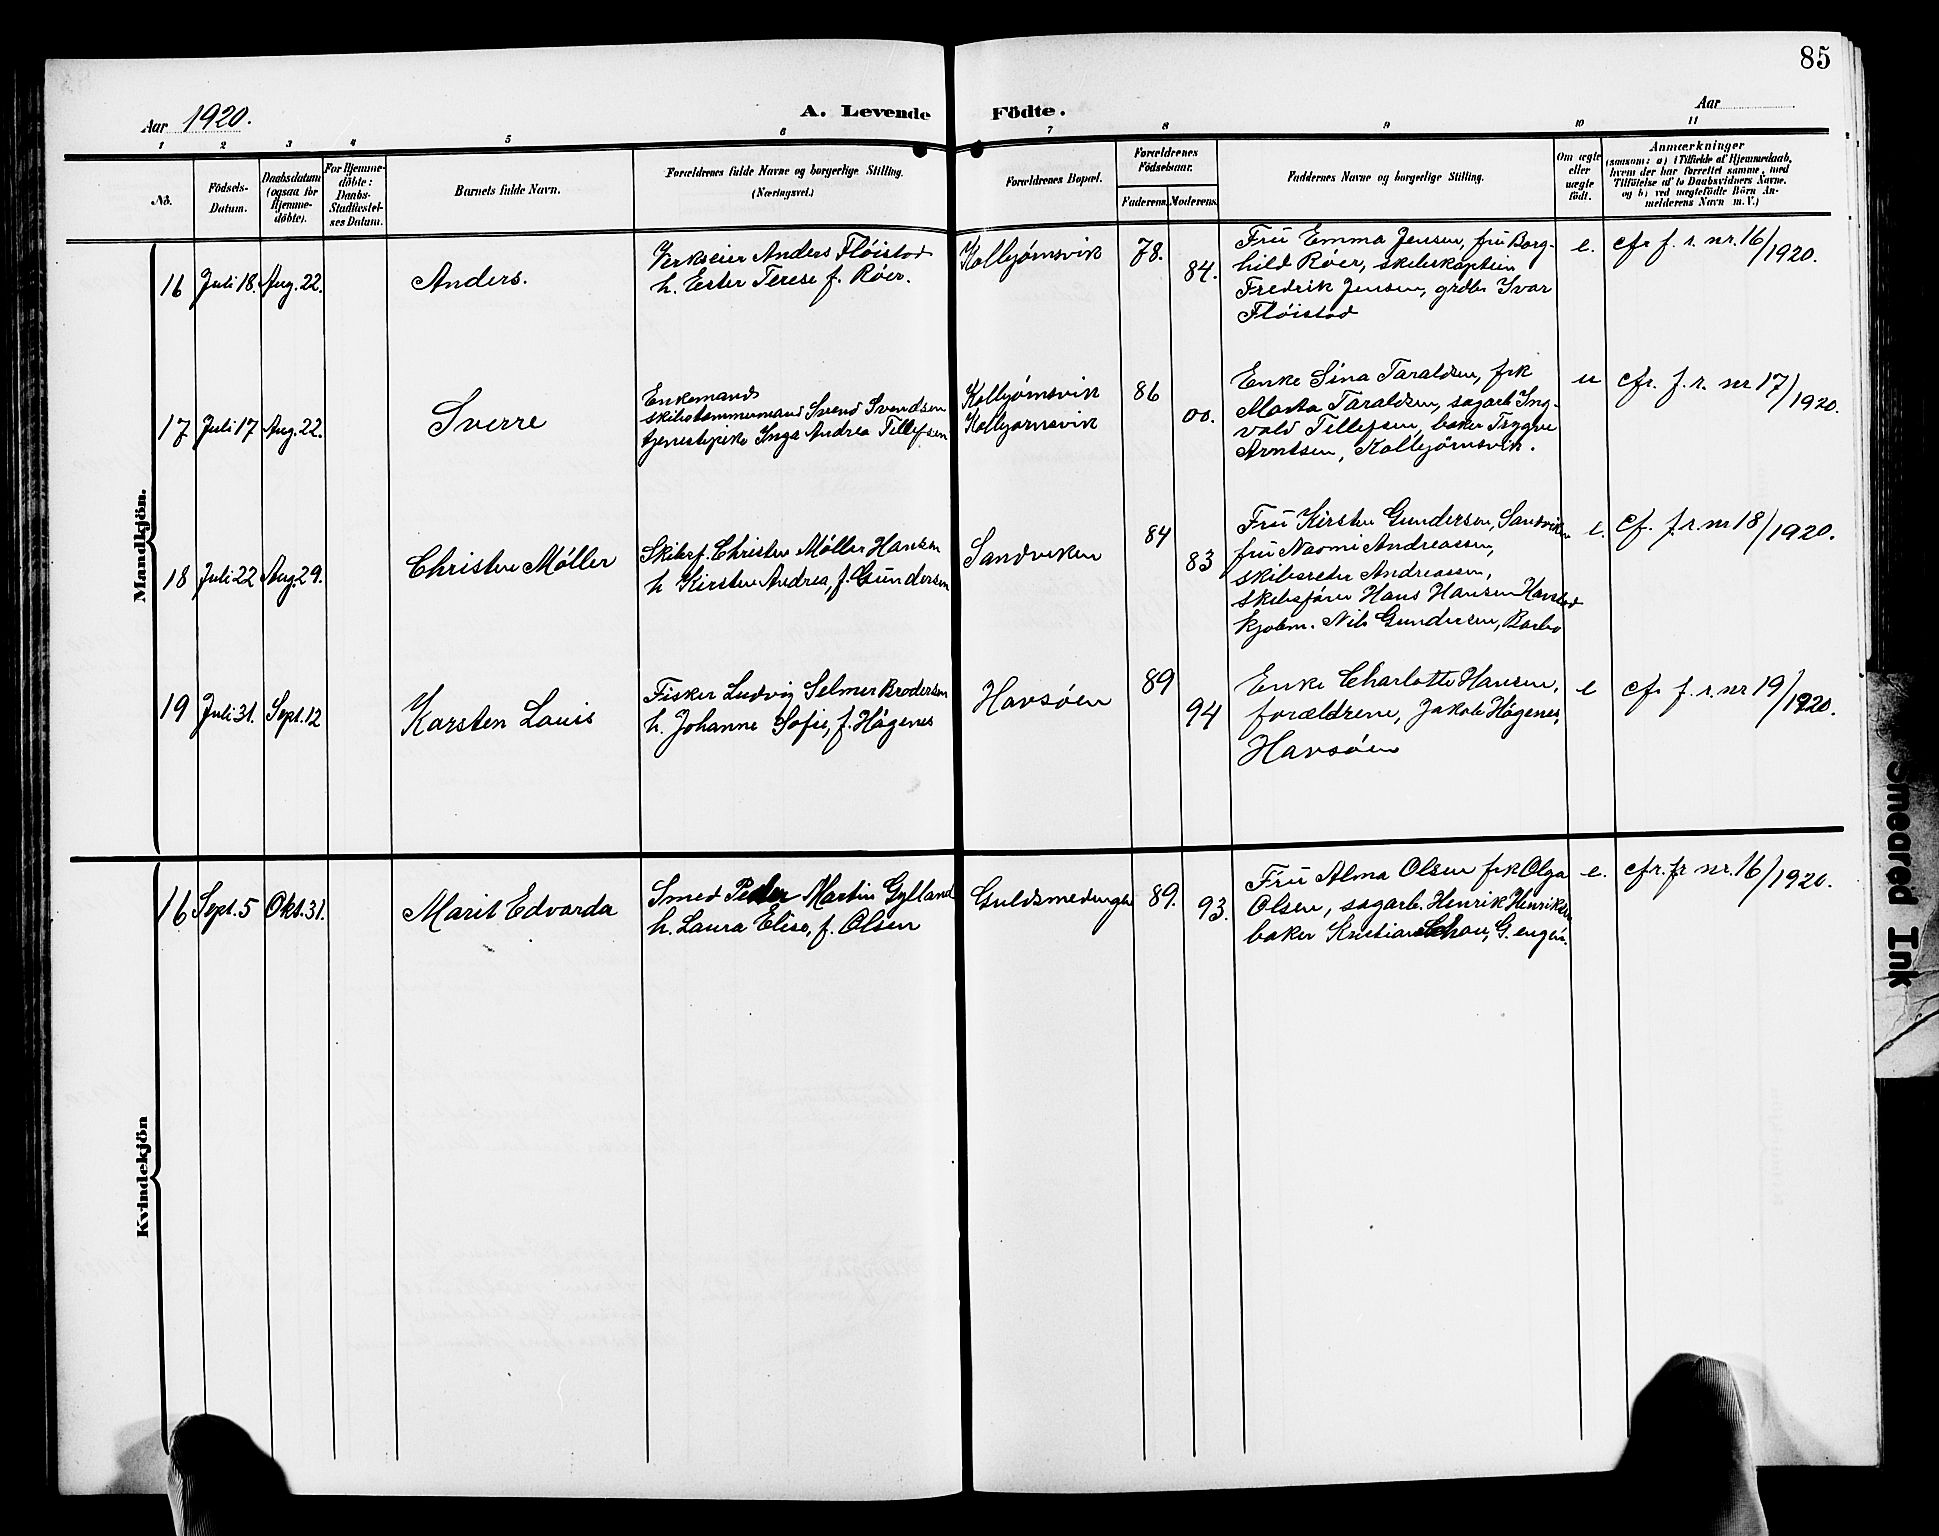 85
Aar 1920.
A. Levende
Födte.
Aar
1
2
3
4
5
6
7
8
9
10
11
No.
Födsels-
Datum.
Daabsdatum
(ogsaa for
Hjemme-
döbte).
For Hjemme-
döbte:
Daabs-
Stadfæstel-
ses Datum.
Barnets fulde Navn.
Forældrenes fulde Navne og borgerlige Stilling.
(Næringsvei.)
Forældrenes Bopæl.
Forældrenes
Födselsaar.
Faderens.
Moderens.
Faddernes Navne og borgerlige Stilling.
Om ægte
eller
uægte
födt.
Anmærkninger
(saasom: a) i Tilfælde af Hjemmedaab,
hvem der har forrettet samme, med
Tilföielse af to Daabsvidners Navne.
og b) ved uægtefödte Börn An-
melderens Navn m. V.)
Mandkjön.
16
Juli 18.
Aug. 22.
Anders.
Verkseier Anders Fløistad
h. Ester Terese f. Røer.
Kolbjørnsvik
78.
84.
Fru Emma Jensen, fru Borg-
hild Røer, skibskaptein
Fredrik Jensen, grdbr Ivar
Fløistad
e.
cfr f. r. nr. 16/1920.
17
Juli 17
Aug. 22.
Sverre
Enkemand
skibstømmermand Svend Svendsen
tjenestepike Inga Andrea Tellefsen
Kolbjørnsvik
Kolbjørnsvik
86
00.
Enke Sina Taraldsen, frk
Marta Taraldsen, sagarb Ing-
vald Tellefsen, baker Trygve
Arntsen, Kolbjørnsvik.
u
cfr. f. r. nr 17/1920.
18
Juli 22
Aug. 29.
Christen Møller
Skibsf. Christen Møller Hansen
h Kirsten Andrea, f. Gundersen
Sandviken
84
83
Fru Kirsten Gundersen, Sandviken
fru Naomi Andreassen,
skibsreder Andreassen,
skibsfører Hans Hansen
kjøbm. Nils Gundersen, Barbo
e.
cf. f. r. nr 18/1920.
19
Juli 31.
Sept. 12
Karsten Louis
Fisker Ludvig Selmer Brodersen
h. Johanne Sofie, f. Høgenes
Havsøen
89
94
Enke Charlotte Hansen,
forældrene, Jakob Høgenes,
Havsøen
e
cfr f. r. nr 19/1920.
Kvindekjön
16
Sept. 5
Okt. 31.
Marit Edvarda
Smed Peder Martin Gylland
h. Laura Elise, f. Olsen
Guldsmedengen
89.
93.
Fru Alma Olsen frk Olga
Olsen, sagarb. Henrik Henriksen
baker Kristian Schau, G. engen.
e.
cfr. fr nr. 16/1920.
Smeared Ink